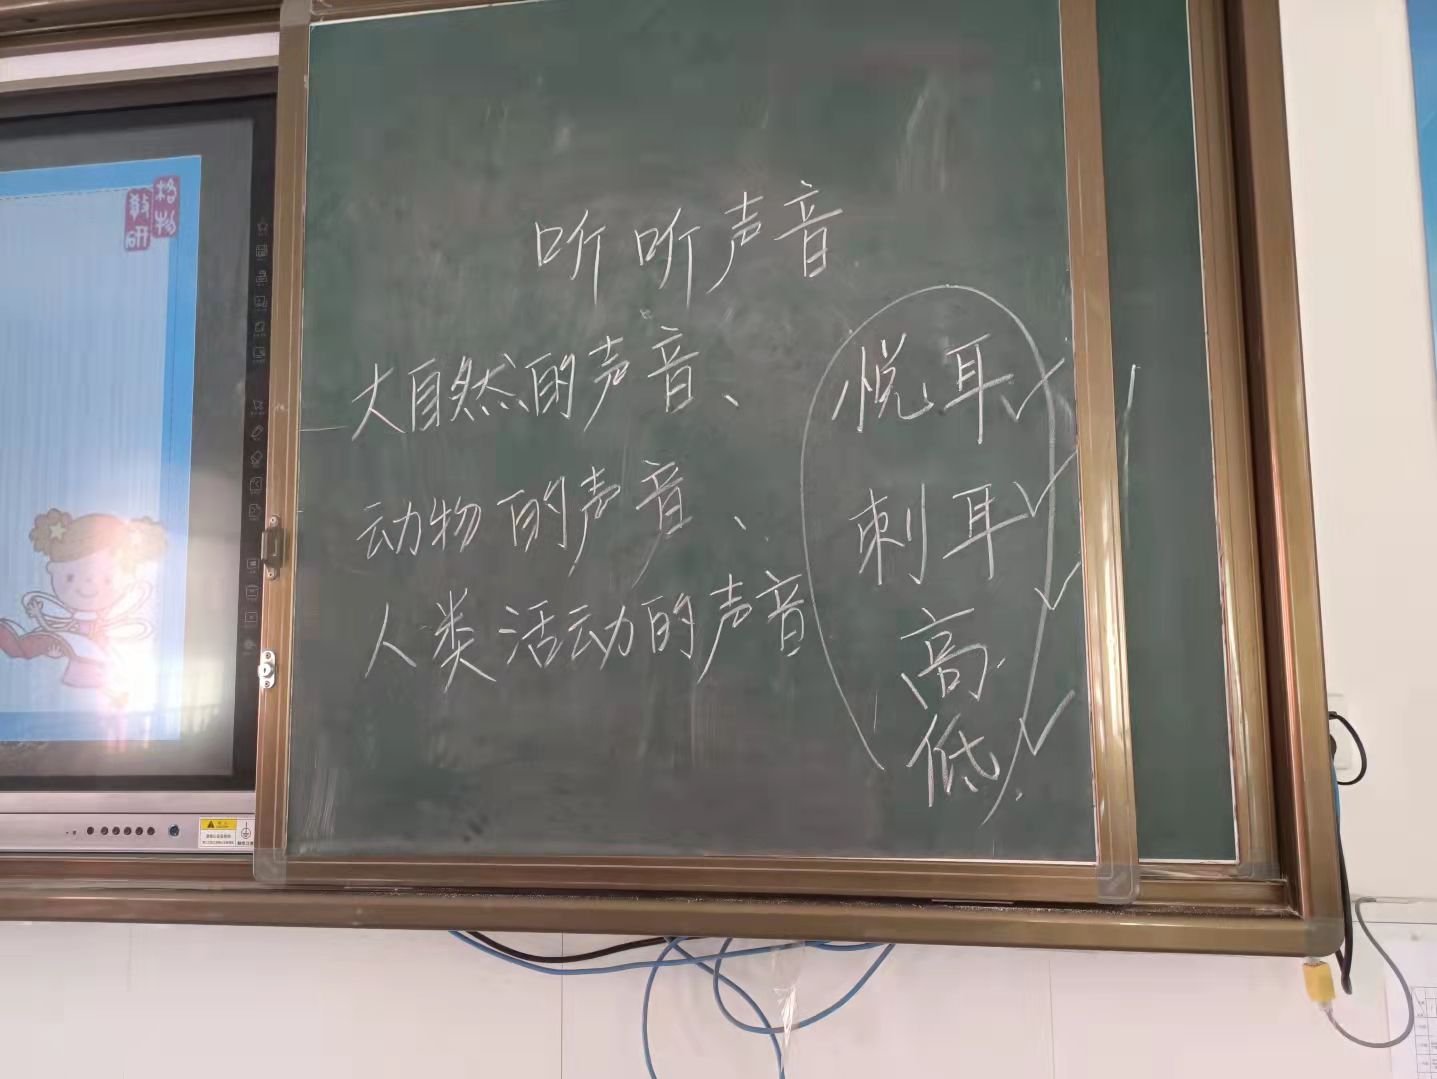 格物
教研
听听声音
大自然的声音、
动物的声音、
人类活动的声音
悦耳
刺耳
高
低